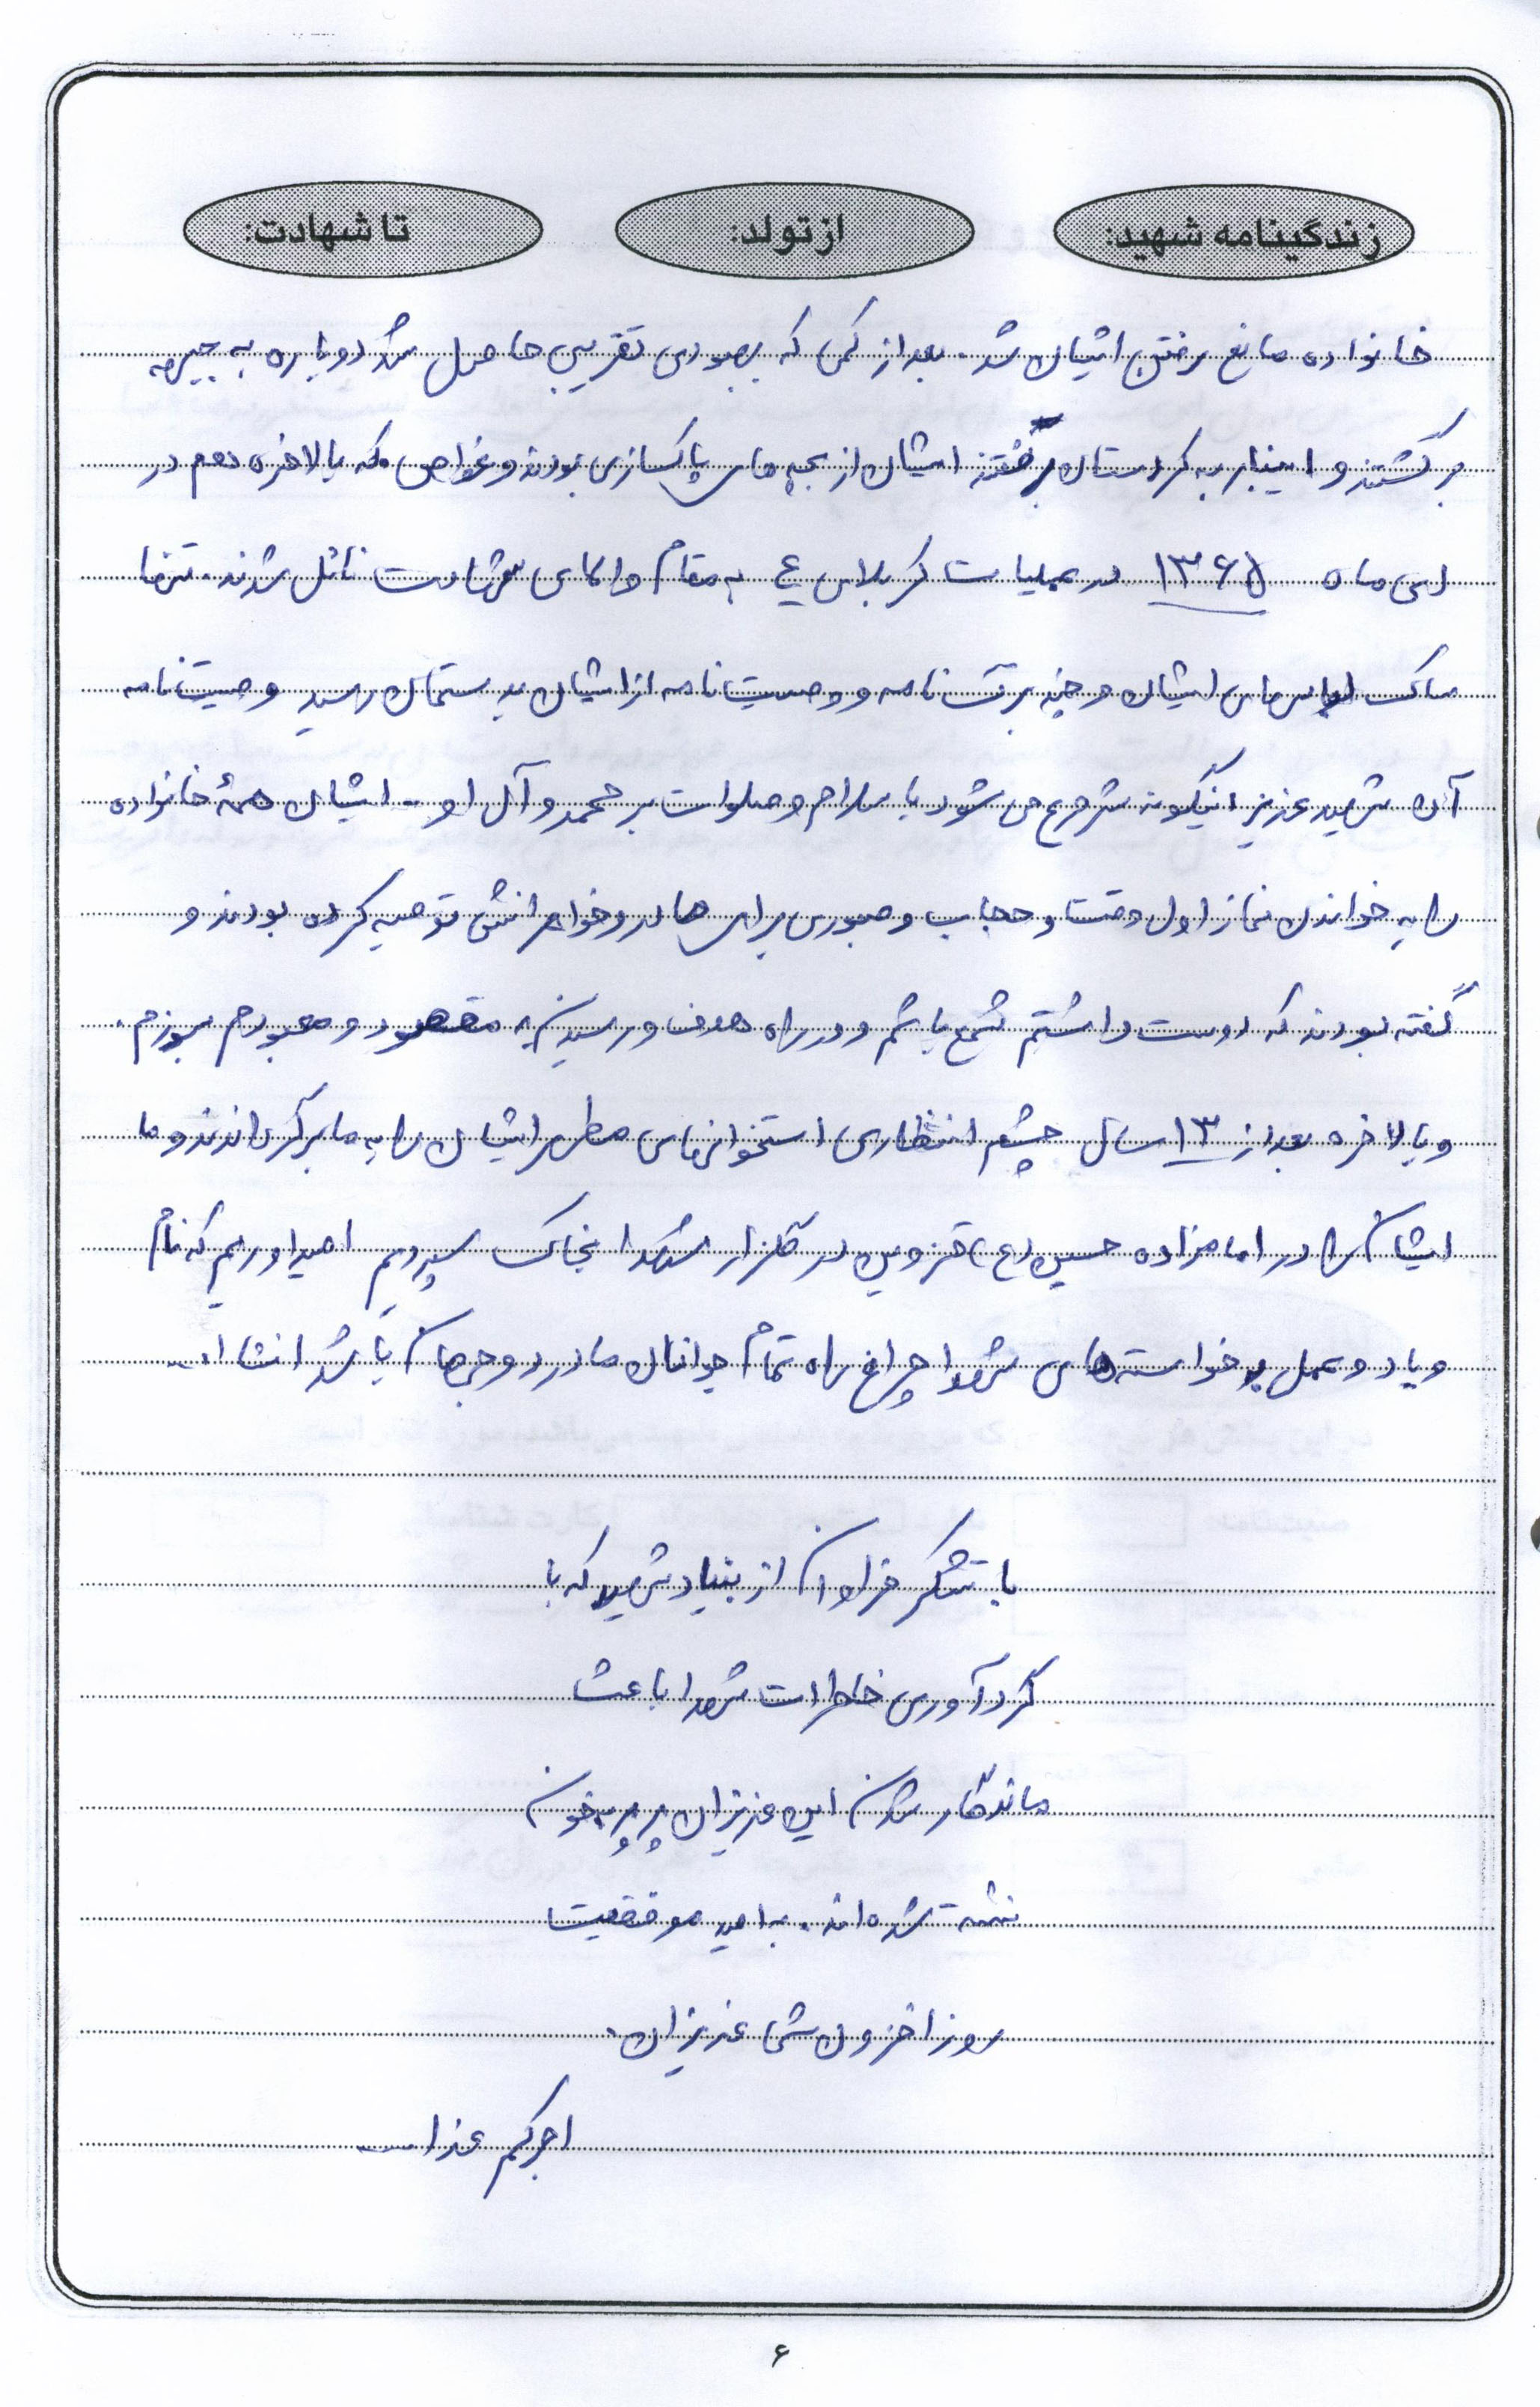 زندگینامه شهید: از تولد: تا شهادت:
خانواده مانع رفتن ایشان شد. بعد از کمی که بهبودی تقریبی حاصل شد دوباره به جبهه
برگشتند و اینبار به کردستان رفتند ایشان از بچه های پاکسازی بودند و غواص که بالاخره دهم در
دی ماه ۱۳۶۵ در عملیات کربلای ۴ به مقام والای شهادت نائل شدند. تنها
ساک لباس های ایشان و چند برگ نامه و وصیت نامه از ایشان بدستمان رسید وصیت نامه
آن شهید عزیز اینگونه شروع می شود با سلام و صلوات بر محمد و آل او - ایشان همهٔ خانواده
را به خواندن نماز اول وقت و حجاب و صبوری برای مادر و خواهرانش توصیه کرده بودند و
گفته بودند که دوست داشتم شمع باشم و در راه هدف و رسیدن به مقصود و معبودم بسوزم.
و بالاخره بعد از ۱۳ سال چشم انتظاری استخوانهای مطهر ایشان را به ما برگرداندند و ما
ایشان را در امامزاده حسین (ع) قزوین در گلزار شهدا بخاک سپردیم امیدواریم که نام
و یاد و عمل به خواسته های شهدا چراغ راه تمام جوانان ما در دو جهان باشد انشاا...
با تشکر فراوان از بنیاد شهید که با
گردآوری خاطرات شهدا باعث
ماندگار شدن این عزیزان پرپر بخون
نشسته شده اند. به امید موفقیت
روز افزون شما عزیزان.
اجرکم عندا...
۶